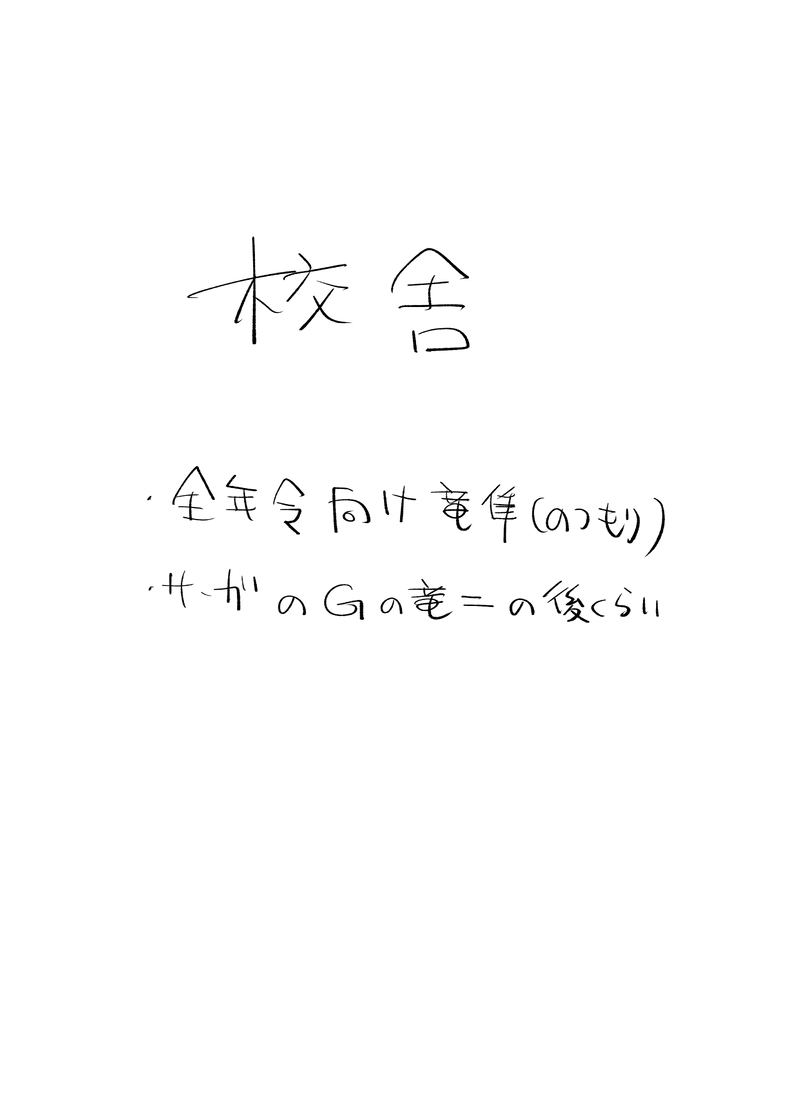 校舎
・全年令向け竜隼(のつもり)
・サーガのGの竜二の後くらい